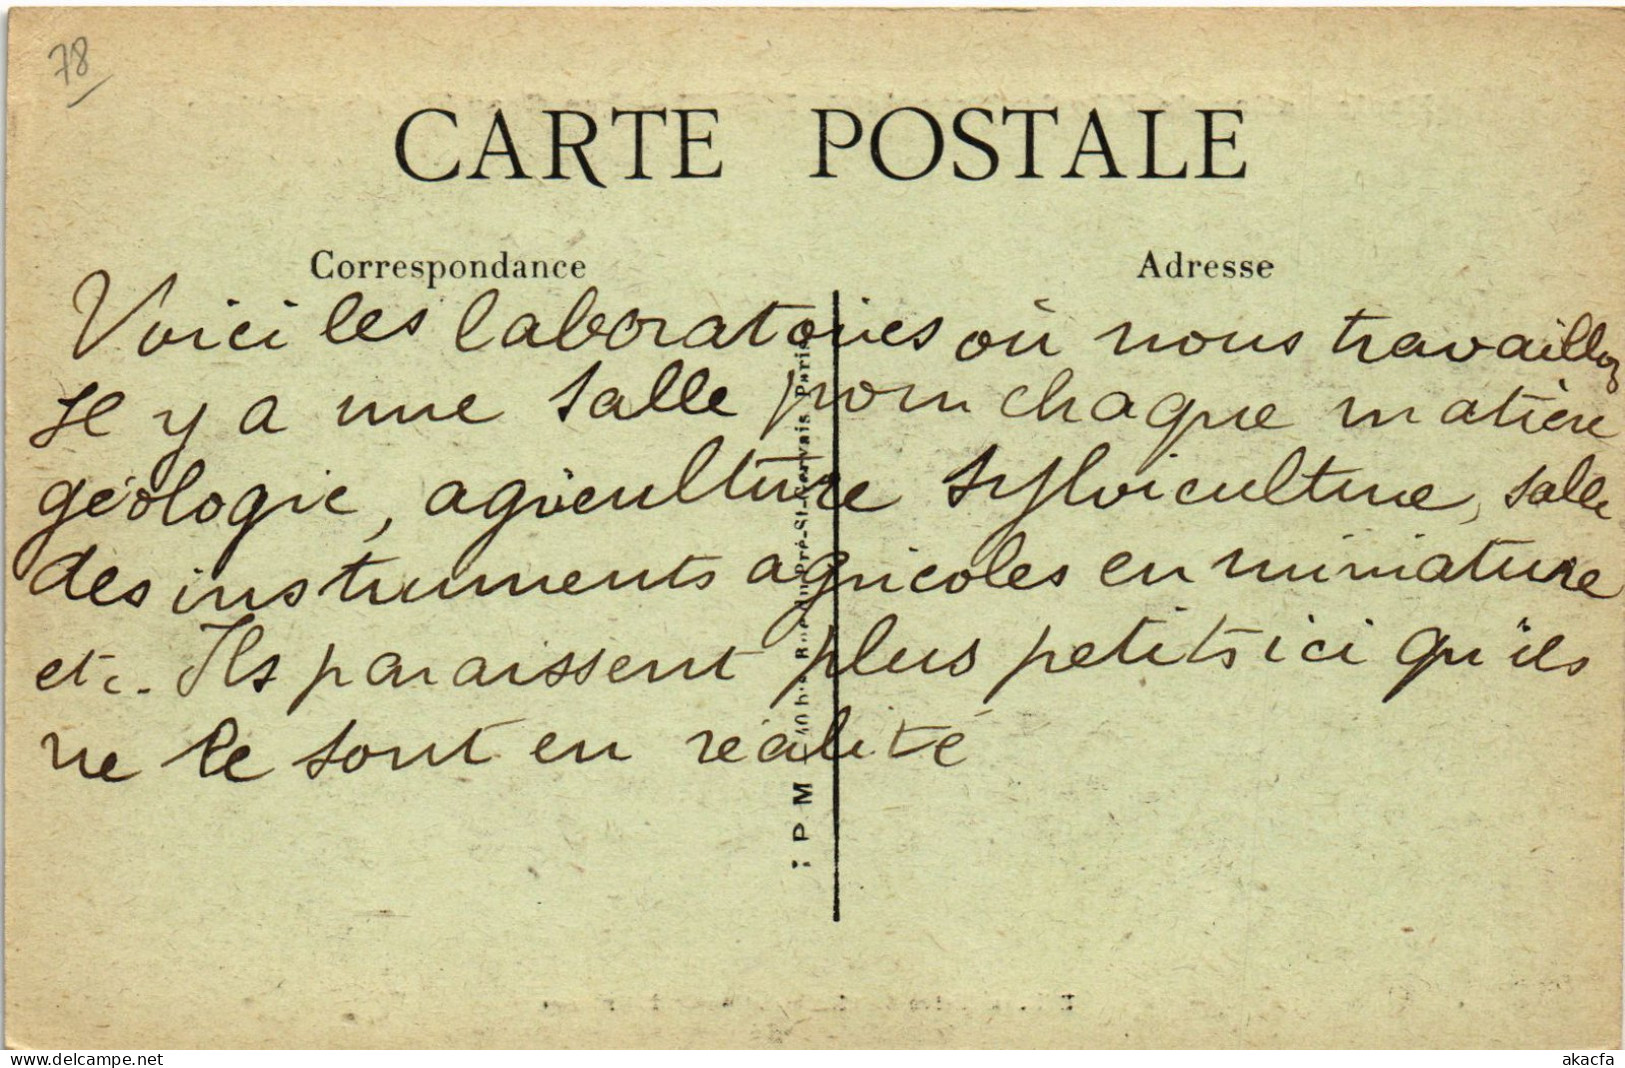 78
CARTE POSTALE
Correspondance
Adresse
Voici les laboratoires où nous travaillons
Il y a une salle pour chaque matière
géologie, agriculture sylviculture, salle
des instruments agricoles en miniature
etc. Ils paraissent plus petits ici qu'ils
ne le sont en réalité
P M 40 bis Rue du Pré-St-Gervais Paris
www.delcampe.net
akacfa